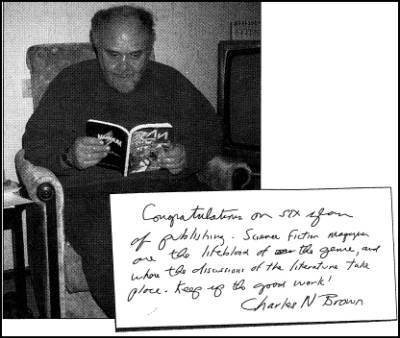 Congratulations on six years
of publishing. Science Fiction magazines
are the lifeblood of the genre, and
where the discussions of the literature take
place. Keep up the good work!
Charles N Brown